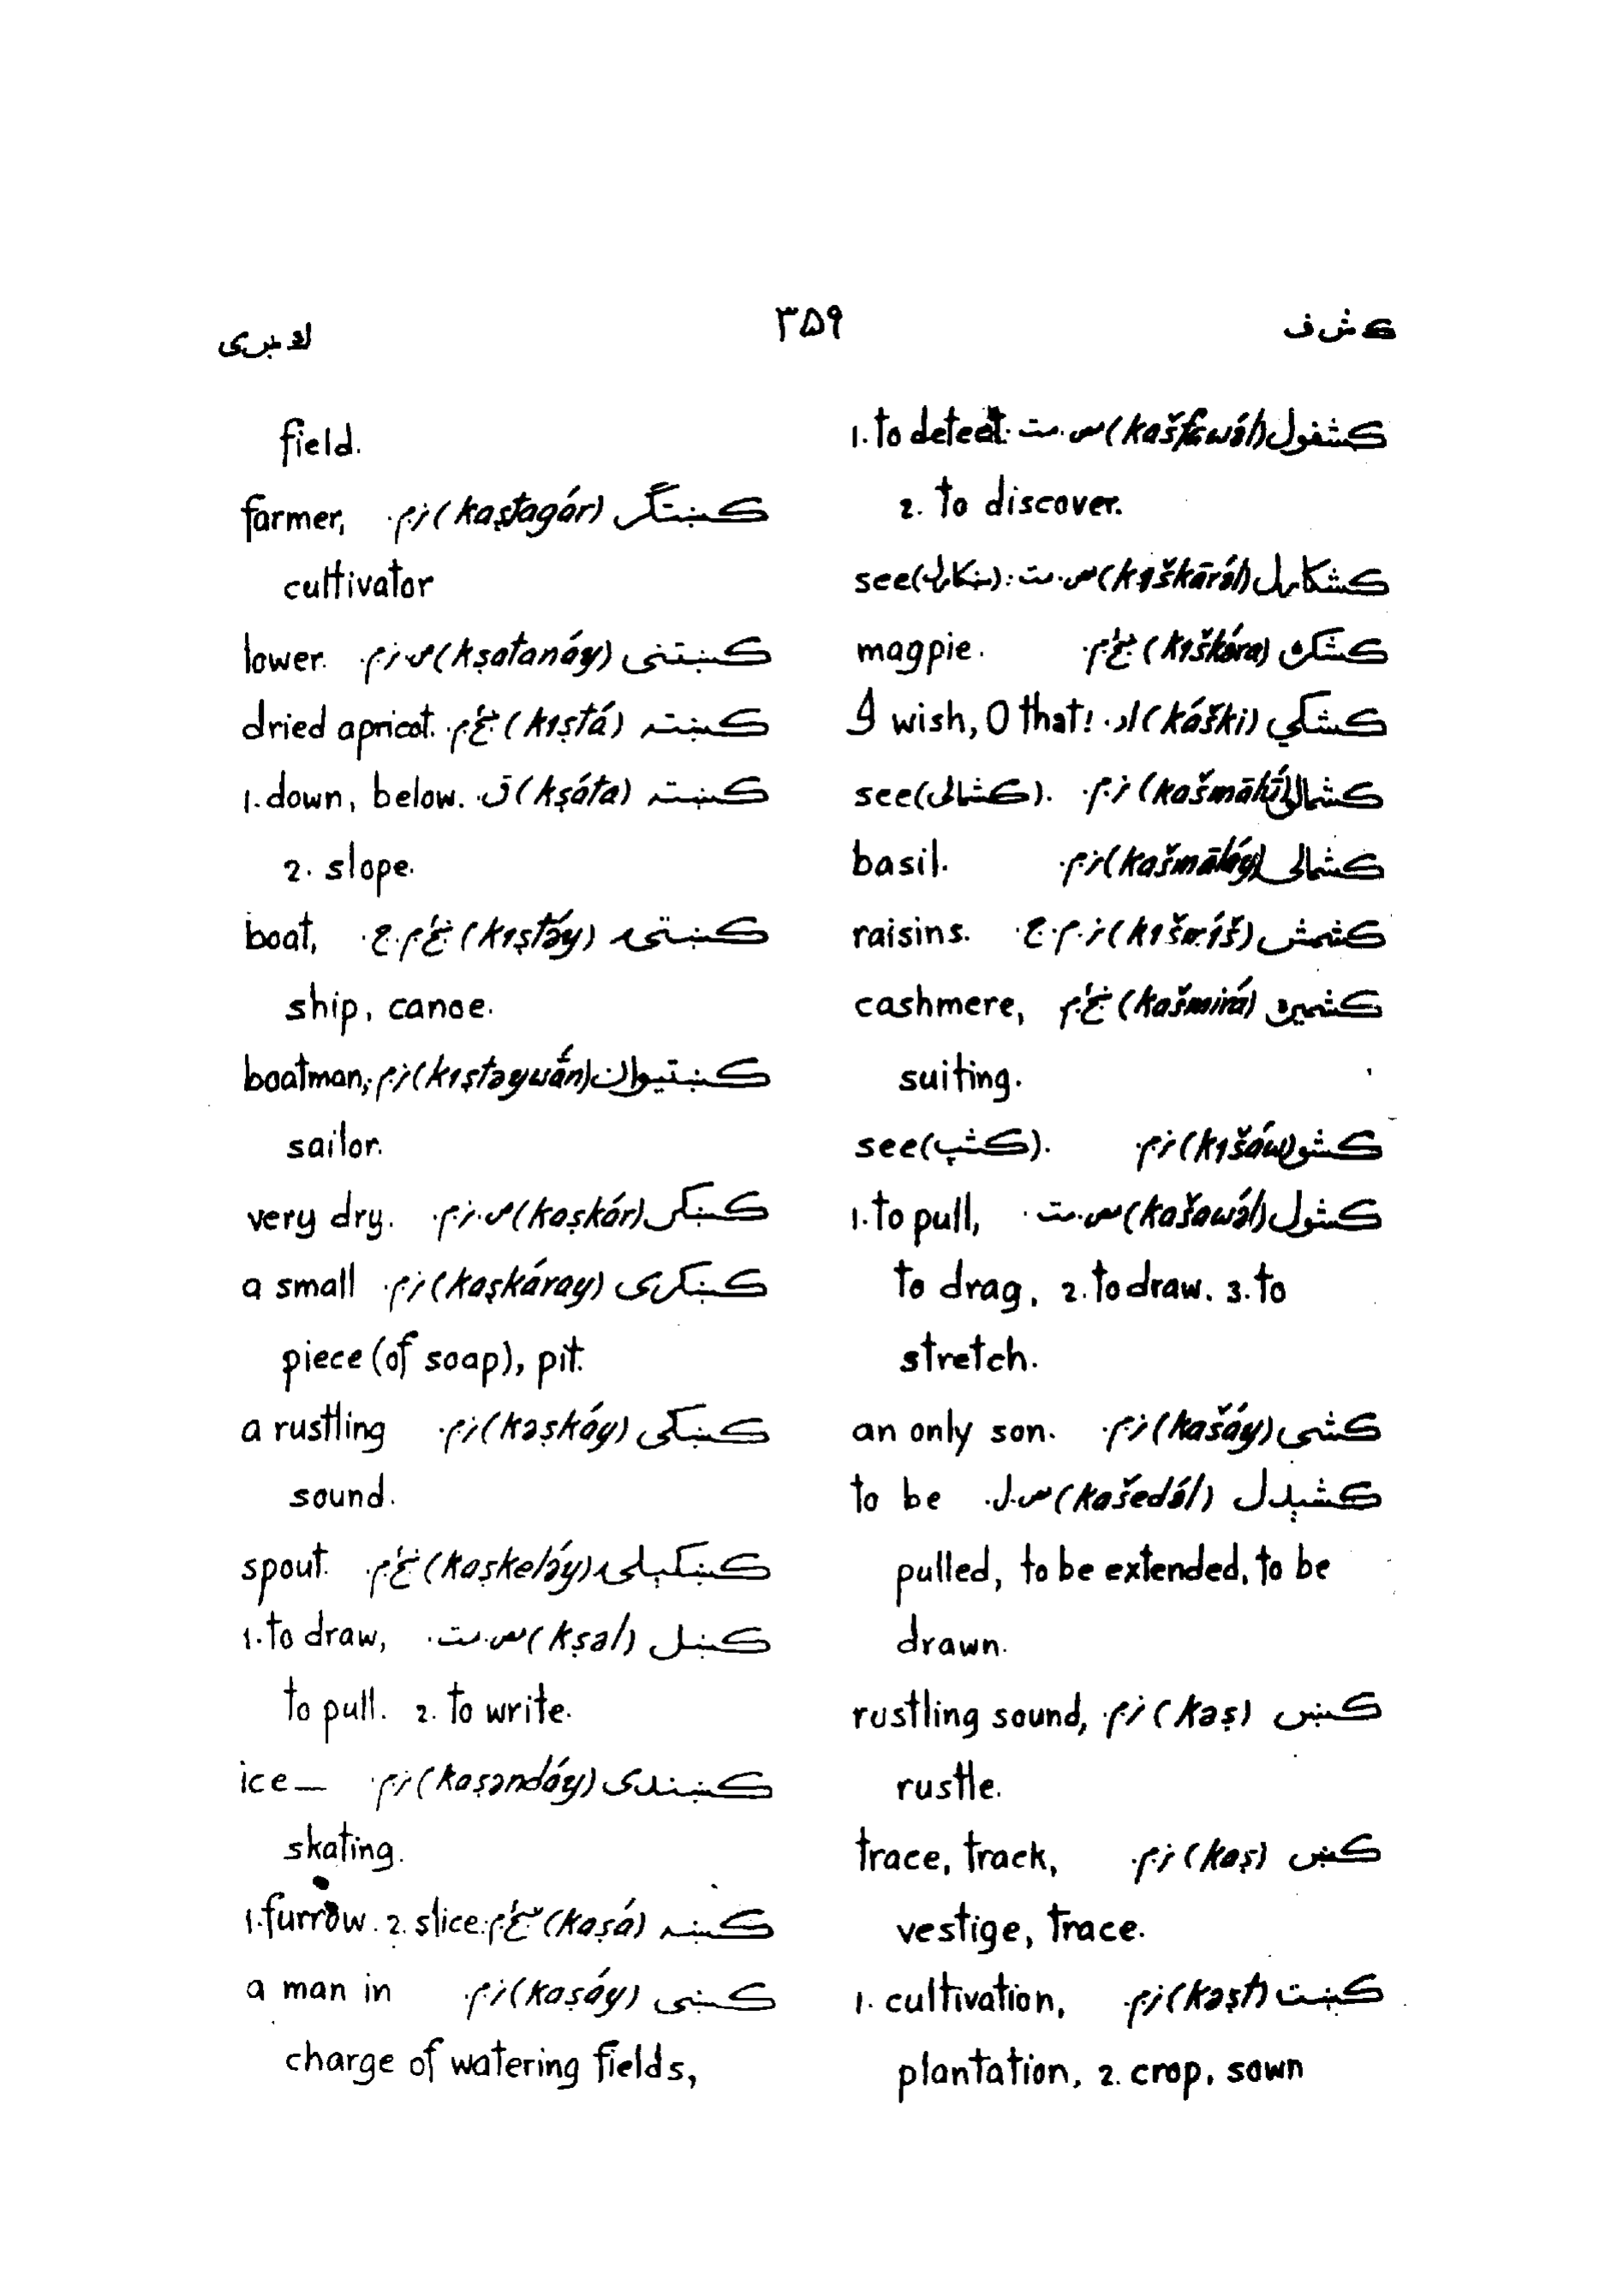 ک ش ف ۳۵۹ ک ښ ی
کشفول (kašfawə́l) س.ت. 1. to detect.
2. to discover.
کشکارل (kıškārə́l) س.ت. see (ښکارل).
کشکره (kıškára) ښځ.م. magpie.
کشکي (káški) ا.د. I wish, O that!
کشمالو (kašmālú) ن.م. see (کشمالی).
کشمالی (kašmāláy) ن.م. basil.
کشمش (kıšmíš) ن.م.ج. raisins.
کشمیره (kašmirá) ښځ.م. cashmere,
suiting.
کشو (kıšáw) ن.م. see (کشپ).
کشول (kašawə́l) س.ت. 1. to pull,
to drag, 2. to draw. 3. to
stretch.
کشی (kašáy) ن.م. an only son.
کشېدل (kašedə́l) س.ل. to be
pulled, to be extended, to be
drawn.
کښ (kəṣ) ن.م. rustling sound,
rustle.
کښ (kaṣ) ن.م. trace, track,
vestige, trace.
کښت (kəṣt) ن.م. 1. cultivation,
plantation, 2. crop, sown
field.
کښتگر (kaṣtagár) ن.م. farmer,
cultivator
کښتنی (kṣatanáy) ص.ن.م. lower.
کښته (kıṣtá) ښځ.م. dried apricot.
کښته (kṣáta) ق. 1. down, below.
2. slope.
کښتۍ (kıṣtə́y) ښځ.م.ج. boat,
ship, canoe.
کښتیوان (kıṣtəyuā́n) ن.م. boatman,
sailor.
کښکر (kaṣkár) ص.ن.م. very dry.
کښکری (kaṣkáray) ن.م. a small
piece (of soap), pit.
کښکی (kəṣkáy) ن.م. a rustling
sound.
کښکېلۍ (kaṣkeləy) ښځ.م. spout.
کښل (kṣəl) س.ت. 1. to draw,
to pull. 2. to write.
کښندی (kaṣəndáy) ن.م. ice—
skating.
کښه (kaṣá) ښځ.م. 1. furrow. 2. slice.
کښی (kaṣáy) ن.م. a man in
charge of watering fields,